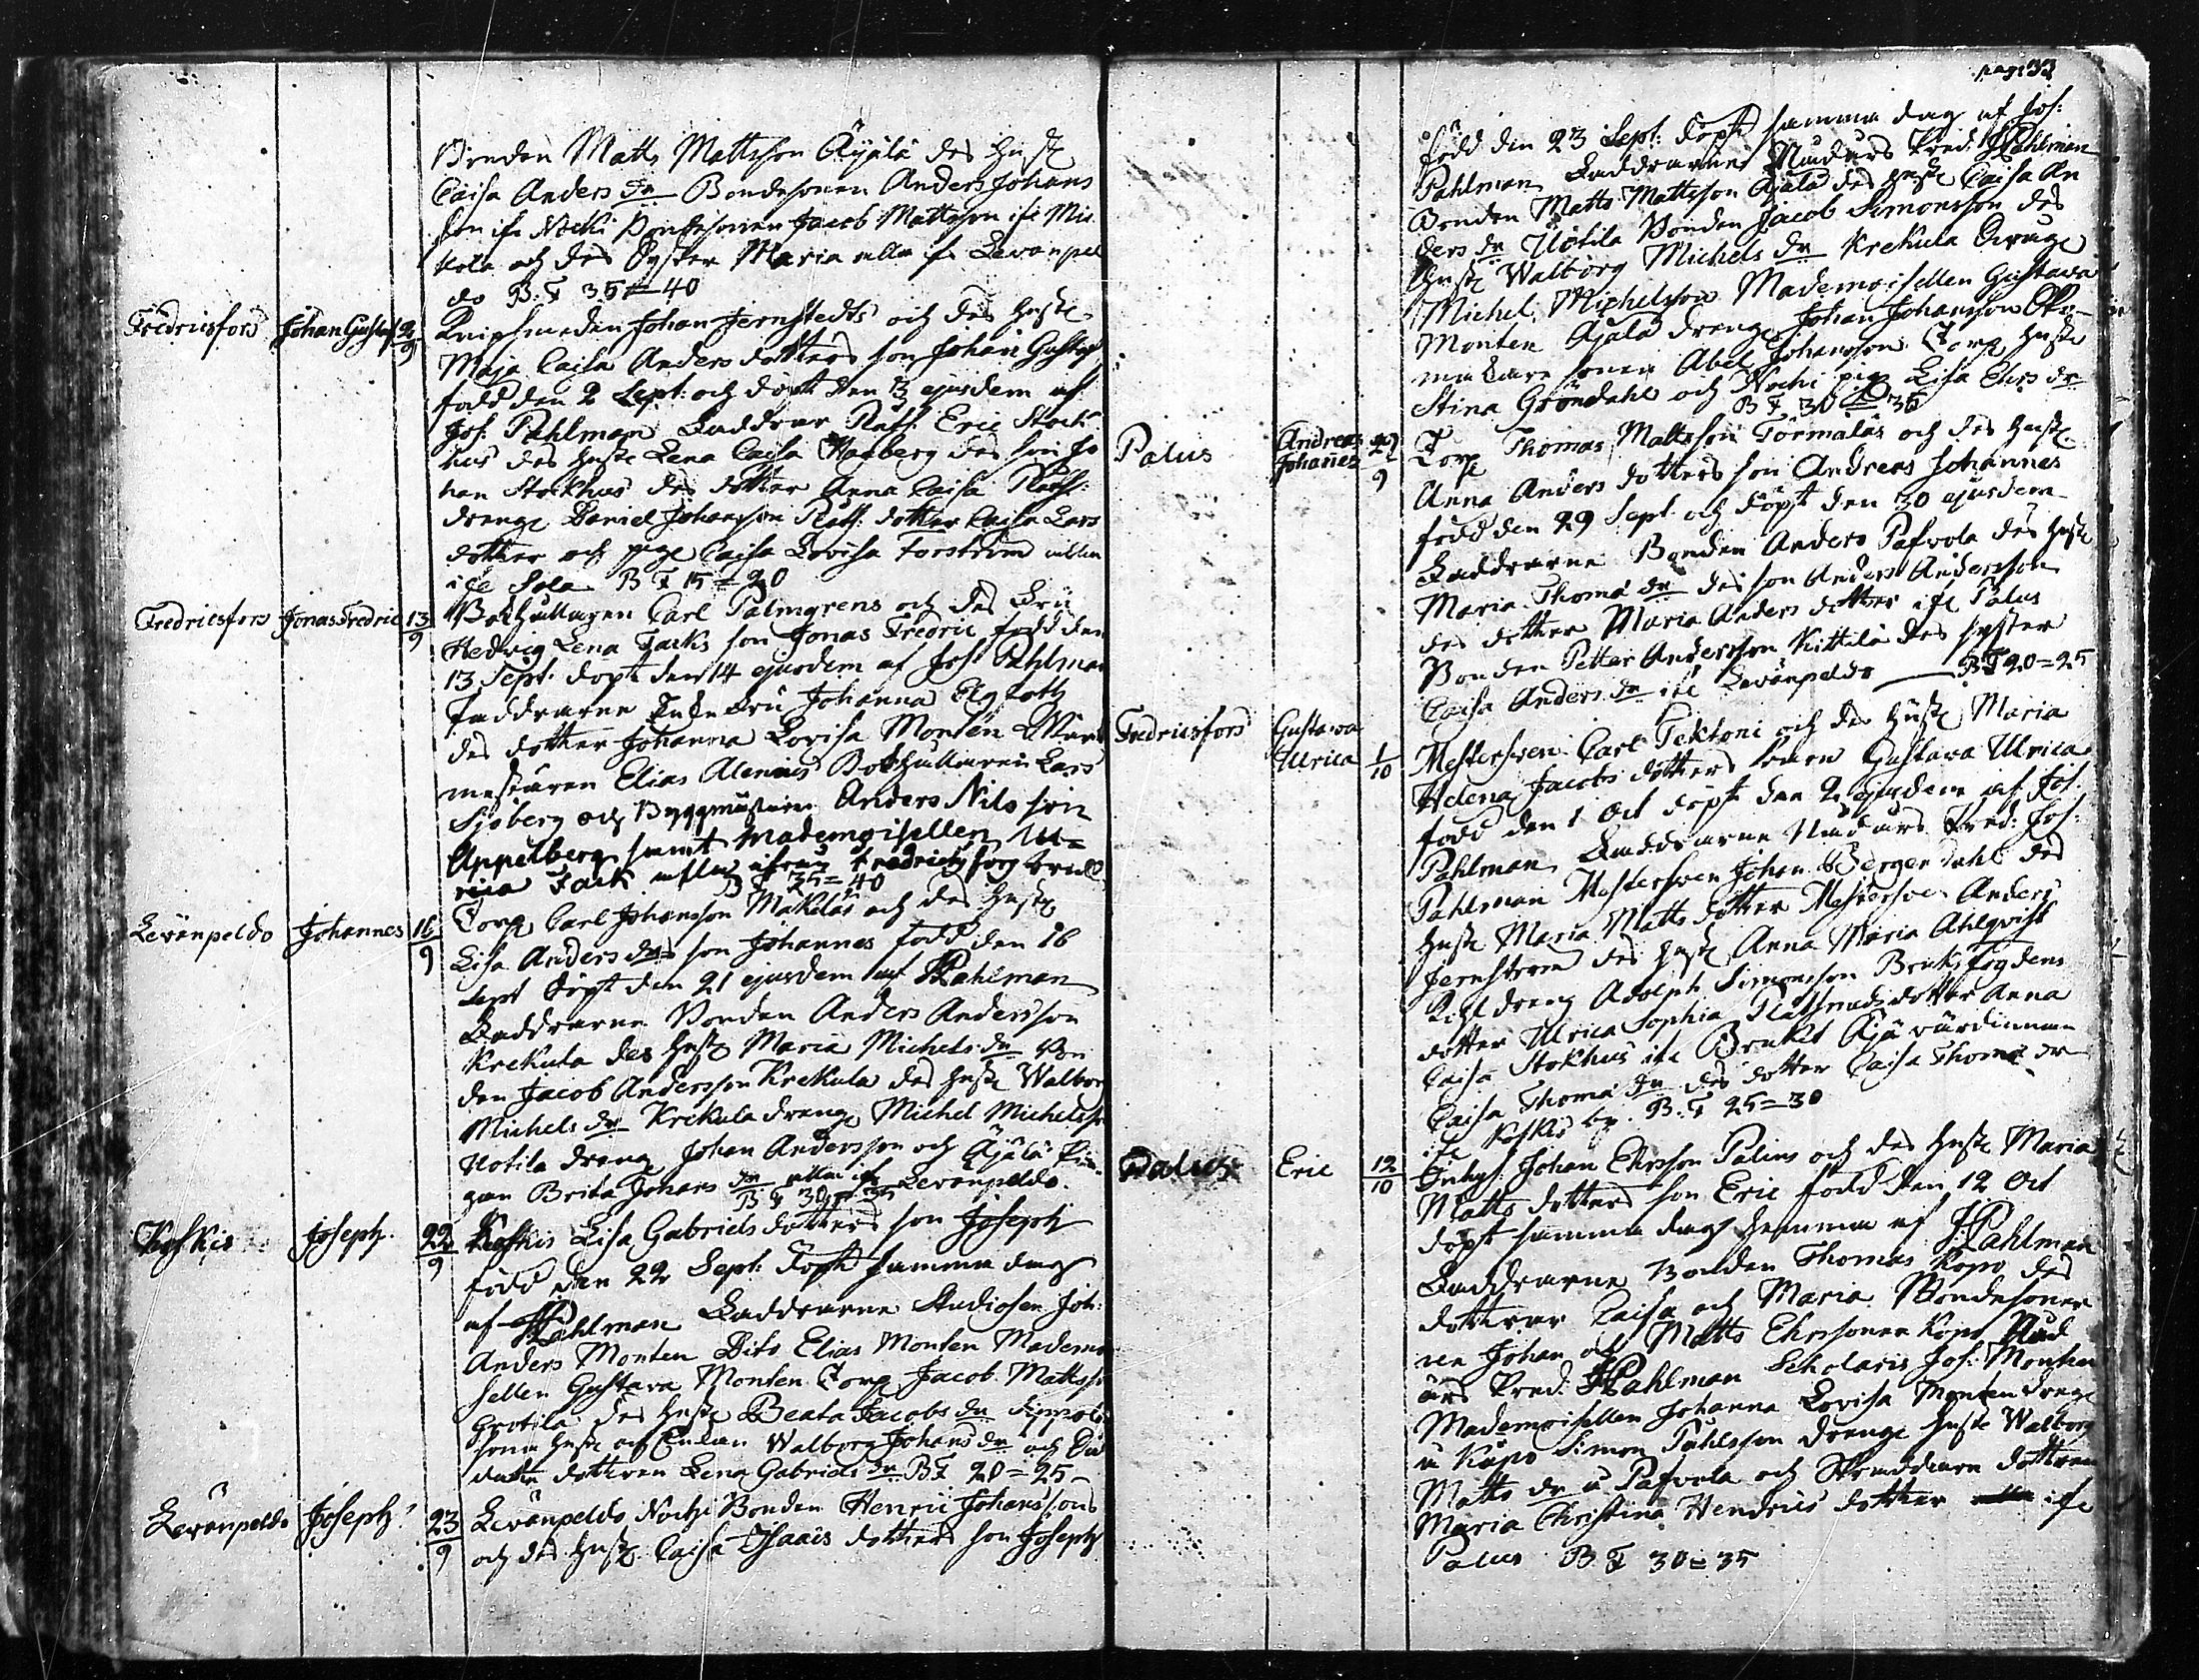 Bonden Matts Mattsson Äyälä des Hust
Caisa Anders dr Bondesonen Anders Johans
son ifr Nocki Bondesonen Jacob Mattsson ifr Mic
kola och des Syster Maria alla fr Levänpel
do B. F 35=40
Fredricsfors Johan Gustaf 2/9 Knipsmeden Johan Jernstedts och des Hustr
Maja Caisa Anders dotters son Johan Gustaf
född den 2 Sept: och döpt den 3 ejusdem af
Jos. Pahlman Faddrar Eric Stock
hus des Hust Lena Caisa Hagberg des son Jo
han Stokhus des dotter Anna Caisa
drenge Daniel Johansson dotter Caisa Lars
dotter och pige Caisa Lovisa Forström allla
ifr Sola B F 15=20
Fredricsfors Jonas Fredric 13/9 Bokhållaren Carl Palmgrens och des Fru
Hedwig Lena Facks son Jonas Fredric född den
13 Sept: döpt den 14 ejusdem af Jos: Pahlman
Faddrarne Fru Johanna
des dotter Johanna Lovisa Montén
mästaren Elias Alenius Bokhållaren Lars
Sjöberg och Byggmästaren Anders Nils son
Appelberg samt Mademoisellen Ul=
rica Fack alla ifrån Fredricsfors bruk
B F 35=40
Levänpeldo Johannes 16/9 Torp Carl Johansson Mäkeläs och des Hustr
Lisa Anders drs son Johannes född den 16
Sept döpt den 21 ejusdem af JPahlman
Faddrarne Bonden Anders Andersson
Krekula des Hust Maria Michels dr Bon
den Jacob Andersson Krekula des Hust Walbor
Michels dr Krekula drenge Michel Michelsson
Uotila drenge Johan Andersson och Äyälä Pi
gan Brita Johans dr alla ifr Levänpeldo.
B F 30=35
Koskis Joseph 22/9 Koskis Lisa Gabriels dotters son Joseph
född den 22 Sept: döpt samma dag
af JPahlman Faddrarne Studiosen Joh:
Anders Monten Dito Elias Monten Mademo
sellen Gustava Monten Torp Jacob Mattsson
Grotila des Hust Beata Jacobs dr
Walborg Johans dr och
dotteren Lena Gabriels dr B F 20=25
Levänpeldo Joseph 23/9 Levänpeldo Nocki Bonden Henric Johanssons
och des Hust Caisa Isaacs dotters son Joseph
page 33
född den 23 Sept: döpt samma dag af Jos:
Pahlman Faddrarne Nådårs Pred: JPahlman
Bonden Matts Mattsson Äjälä des Hust Caisa An
ders dr Uotila Bonden Jacob Simonsson des
Hust Walborg Michels dr Krekula Drenge
Michel Michelsson Mademoisellen Gustava
Monten Äjälä drenge Johan Johansson
makare sonen Abel Johansson Torp Hust
Stina Gröndahl och Nocki pige Lisa Ehrs dr
B F 30=35
Palus Andreas Johannes 29/9 Torp Thomas Mattsson Tormaläs och des Hust
Anna Anders dotters son Andreas Johannes
född den 29 Sept och döpt den 30 ejusdem
Faddrarne Bonden Anders Pafvola des Hust
Maria Thomæ dr des son Anders Andersson
des dotter Maria Anders dotter ifr Palus
Bonden Petter Andersson Kittilä des syster
Caisa Anders dr ifr Levänpeldo B F 20=25
Fredricsfors Gustava Ulrica 1/10 Mestersven Carl Tektoni och des Hust Maria
Helena Jacobs dotters barn Gustava Ulrica
född den 1 Oct döpt den 2 ejusdem af Jos.
Pahlman Faddrarne Nådårs Pred: Jos:
Pahlman Mestersven Johan Bergendahl des
Hust Maria Matts dotter Mestersve Anders
Jernström des Hust Anna Maria Ahlqvist
Kohldreng Adolph Simonsson Bruksfogdens
dotter Ulrica Sophia dotter Anna
Caisa Stokhus ifr Bruket värdinnan
Caisa Thomæ dr des dotter Caisa Thomæ dr
ifr Koskis by. B. F 25=30
Palus Eric 12/10 Inhys. Johan Ehrsson Palins och des Hust Maria
Matts dotters son Eric född den 12 Oct
döpt samma dag hemma af JPahlman
Faddrarne Bonden Thomas Kopo des
dottrar Caisa och Maria Bondesoner
ne Johan och Matts Ehrssoner Kopo Nåd
års Pred: JPahlman Scholaris Jos: Monten
Mademoisellen Johanna Lovisa Monten drenge
u Kåpo Simon Påhlsson drenge Hust Walborg
Matts dr u Pafvola och Skreddare dottren
Maria Christina Hendrics dotter ifr
Palus B F 30=35